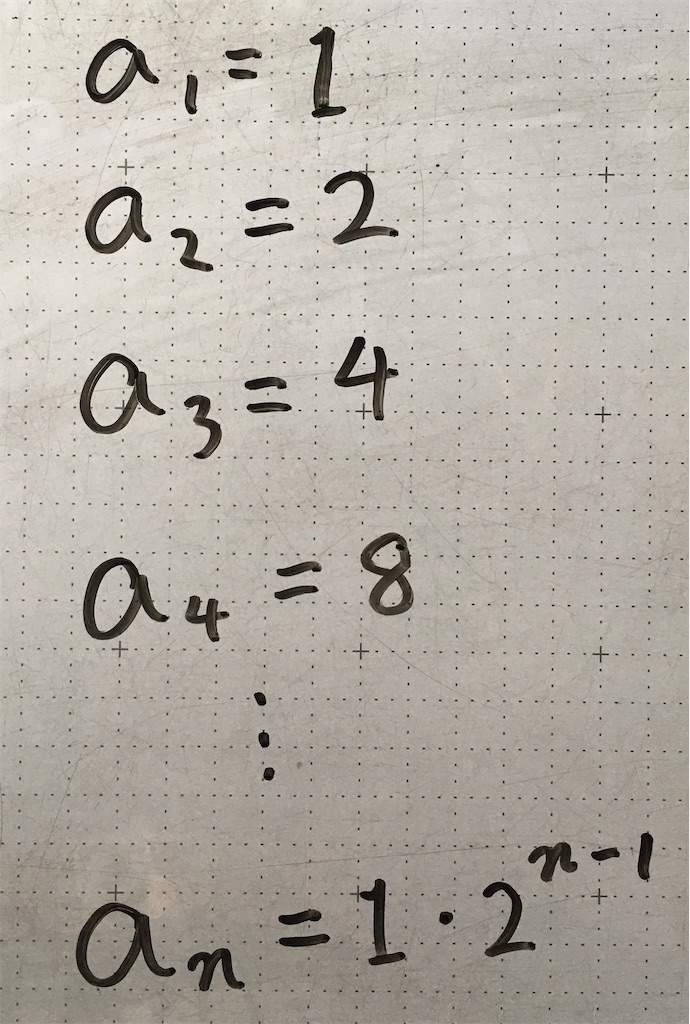 a₁ = 1
a₂ = 2
a₃ = 4
a₄ = 8
⋮
aₙ = 1 · 2ⁿ⁻¹